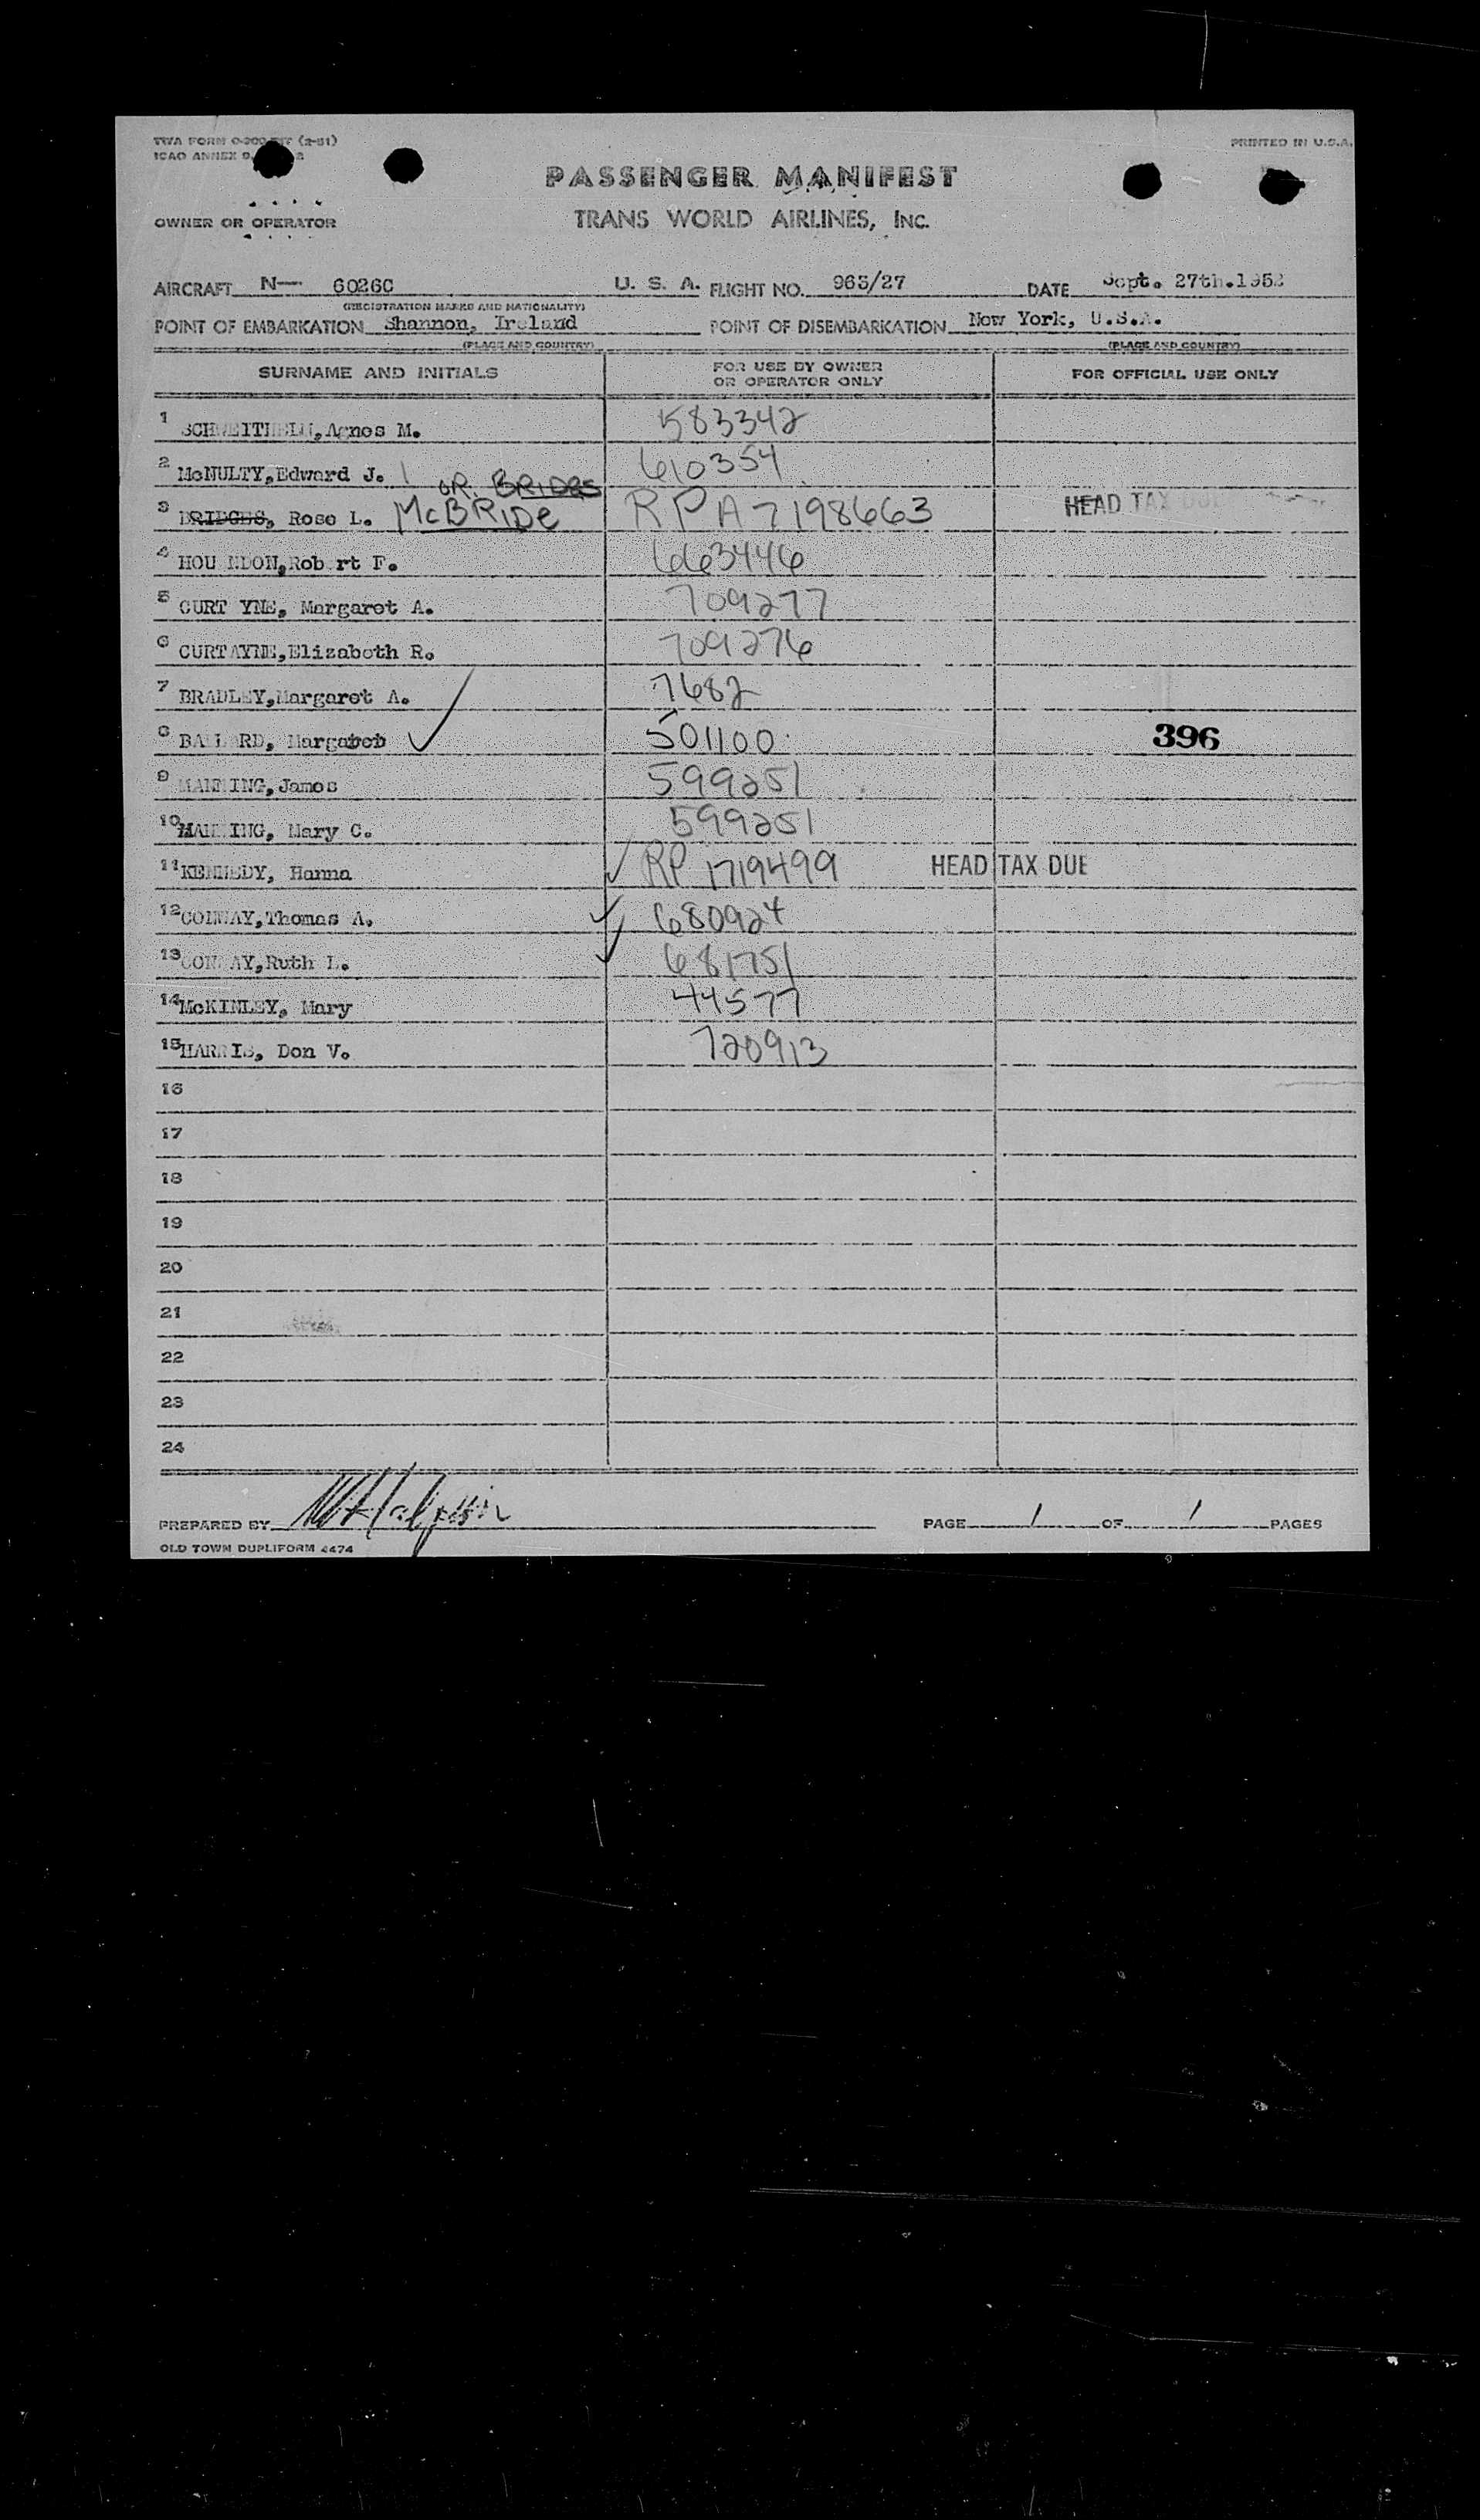 TWA FORM 0-300 (2-51)
ICAO ANNEX 9,
PRINTED IN U.S.A.
PASSENGER MANIFEST
OWNER OR OPERATOR
TRANS WORLD AIRLINES, INC.
AIRCRAFT N— 6026C U. S. A. FLIGHT NO. 965/27 DATE Sept. 27th.1952
(REGISTRATION MARKS AND NATIONALITY)
POINT OF EMBARKATION Shannon, Ireland POINT OF DISEMBARKATION New York, U.S.A.
(PLACE AND COUNTRY) (PLACE AND COUNTRY)
SURNAME AND INITIALS FOR USE BY OWNER OR OPERATOR ONLY FOR OFFICIAL USE ONLY
1 Agnes M. 583342
2 McNULTY,Edward J. 610354
OR BRIDGES
3 BRIDGES, Rose L. McBRIDE RP A7198663 HEAD TAX DUE
4 Robert F. 663446
5 CURT YNE, Margaret A. 709277
6 CURTAYNE,Elizabeth R. 709276
7 BRADLEY,Margaret A. 7682
8 BALLARD, Margaret ✓ 501100 396
9 MANNING,James 599251
10 MANNING, Mary C. 599251
11 KENNEDY, Hanna ✓ RP 1719499 HEAD TAX DUE
12 CONWAY,Thomas A. ✓ 680924
13 CONWAY,Ruth L. ✓ 681751
14 McKINLEY, Mary 44577
15 HARRIS, Don V. 720913
16
17
18
19
20
21
22
23
24
PREPARED BY PAGE 1 OF 1 PAGES
OLD TOWN DUPLIFORM 4474